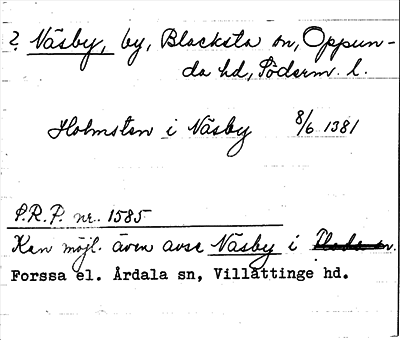 ? Näsby, by, Blacksta sn, Oppun-
da hd, Söderm. l.
Holmsten i Näsby 8/6 1381
P.R.P. nr. 1585
Kan möjl. även avse Näsby i
Forssa el. Årdala sn, Villåttinge hd.